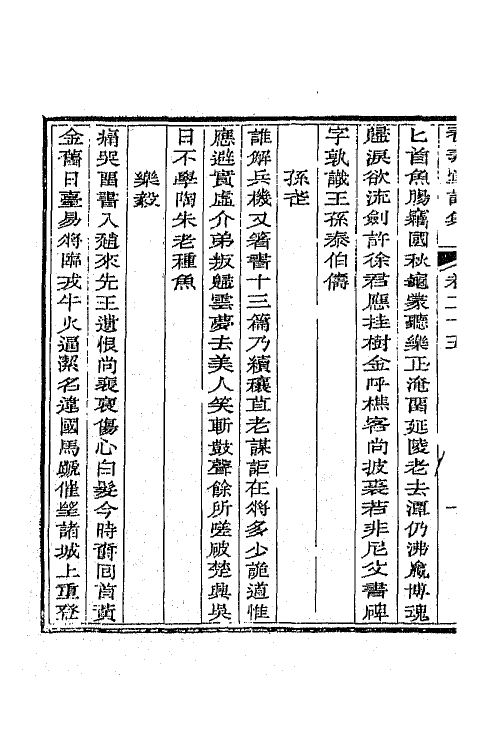 卷二十五
匕首魚腸竊國秋龜蒙聽樂正淹留延陵老去潭仍沸嬴博魂
歸淚欲流劍許徐君應挂樹金呼樵客尚披裘若非尼父書碑
字孰識王孫泰伯儔
孫武
誰解兵機又著書十三篇乃續穰苴老謀詎在將多少詭道惟
應避實虛介弟叛歸雲夢去美人笑斬鼓聲餘所嗟破楚興吳
日不學陶朱老種魚
樂毅
痛哭留書入趙來先王遺恨尚裹衷傷心白髮今時
回首黃
金舊日臺易將臨
牛火逼潔名違國馬
催望諸城上重登